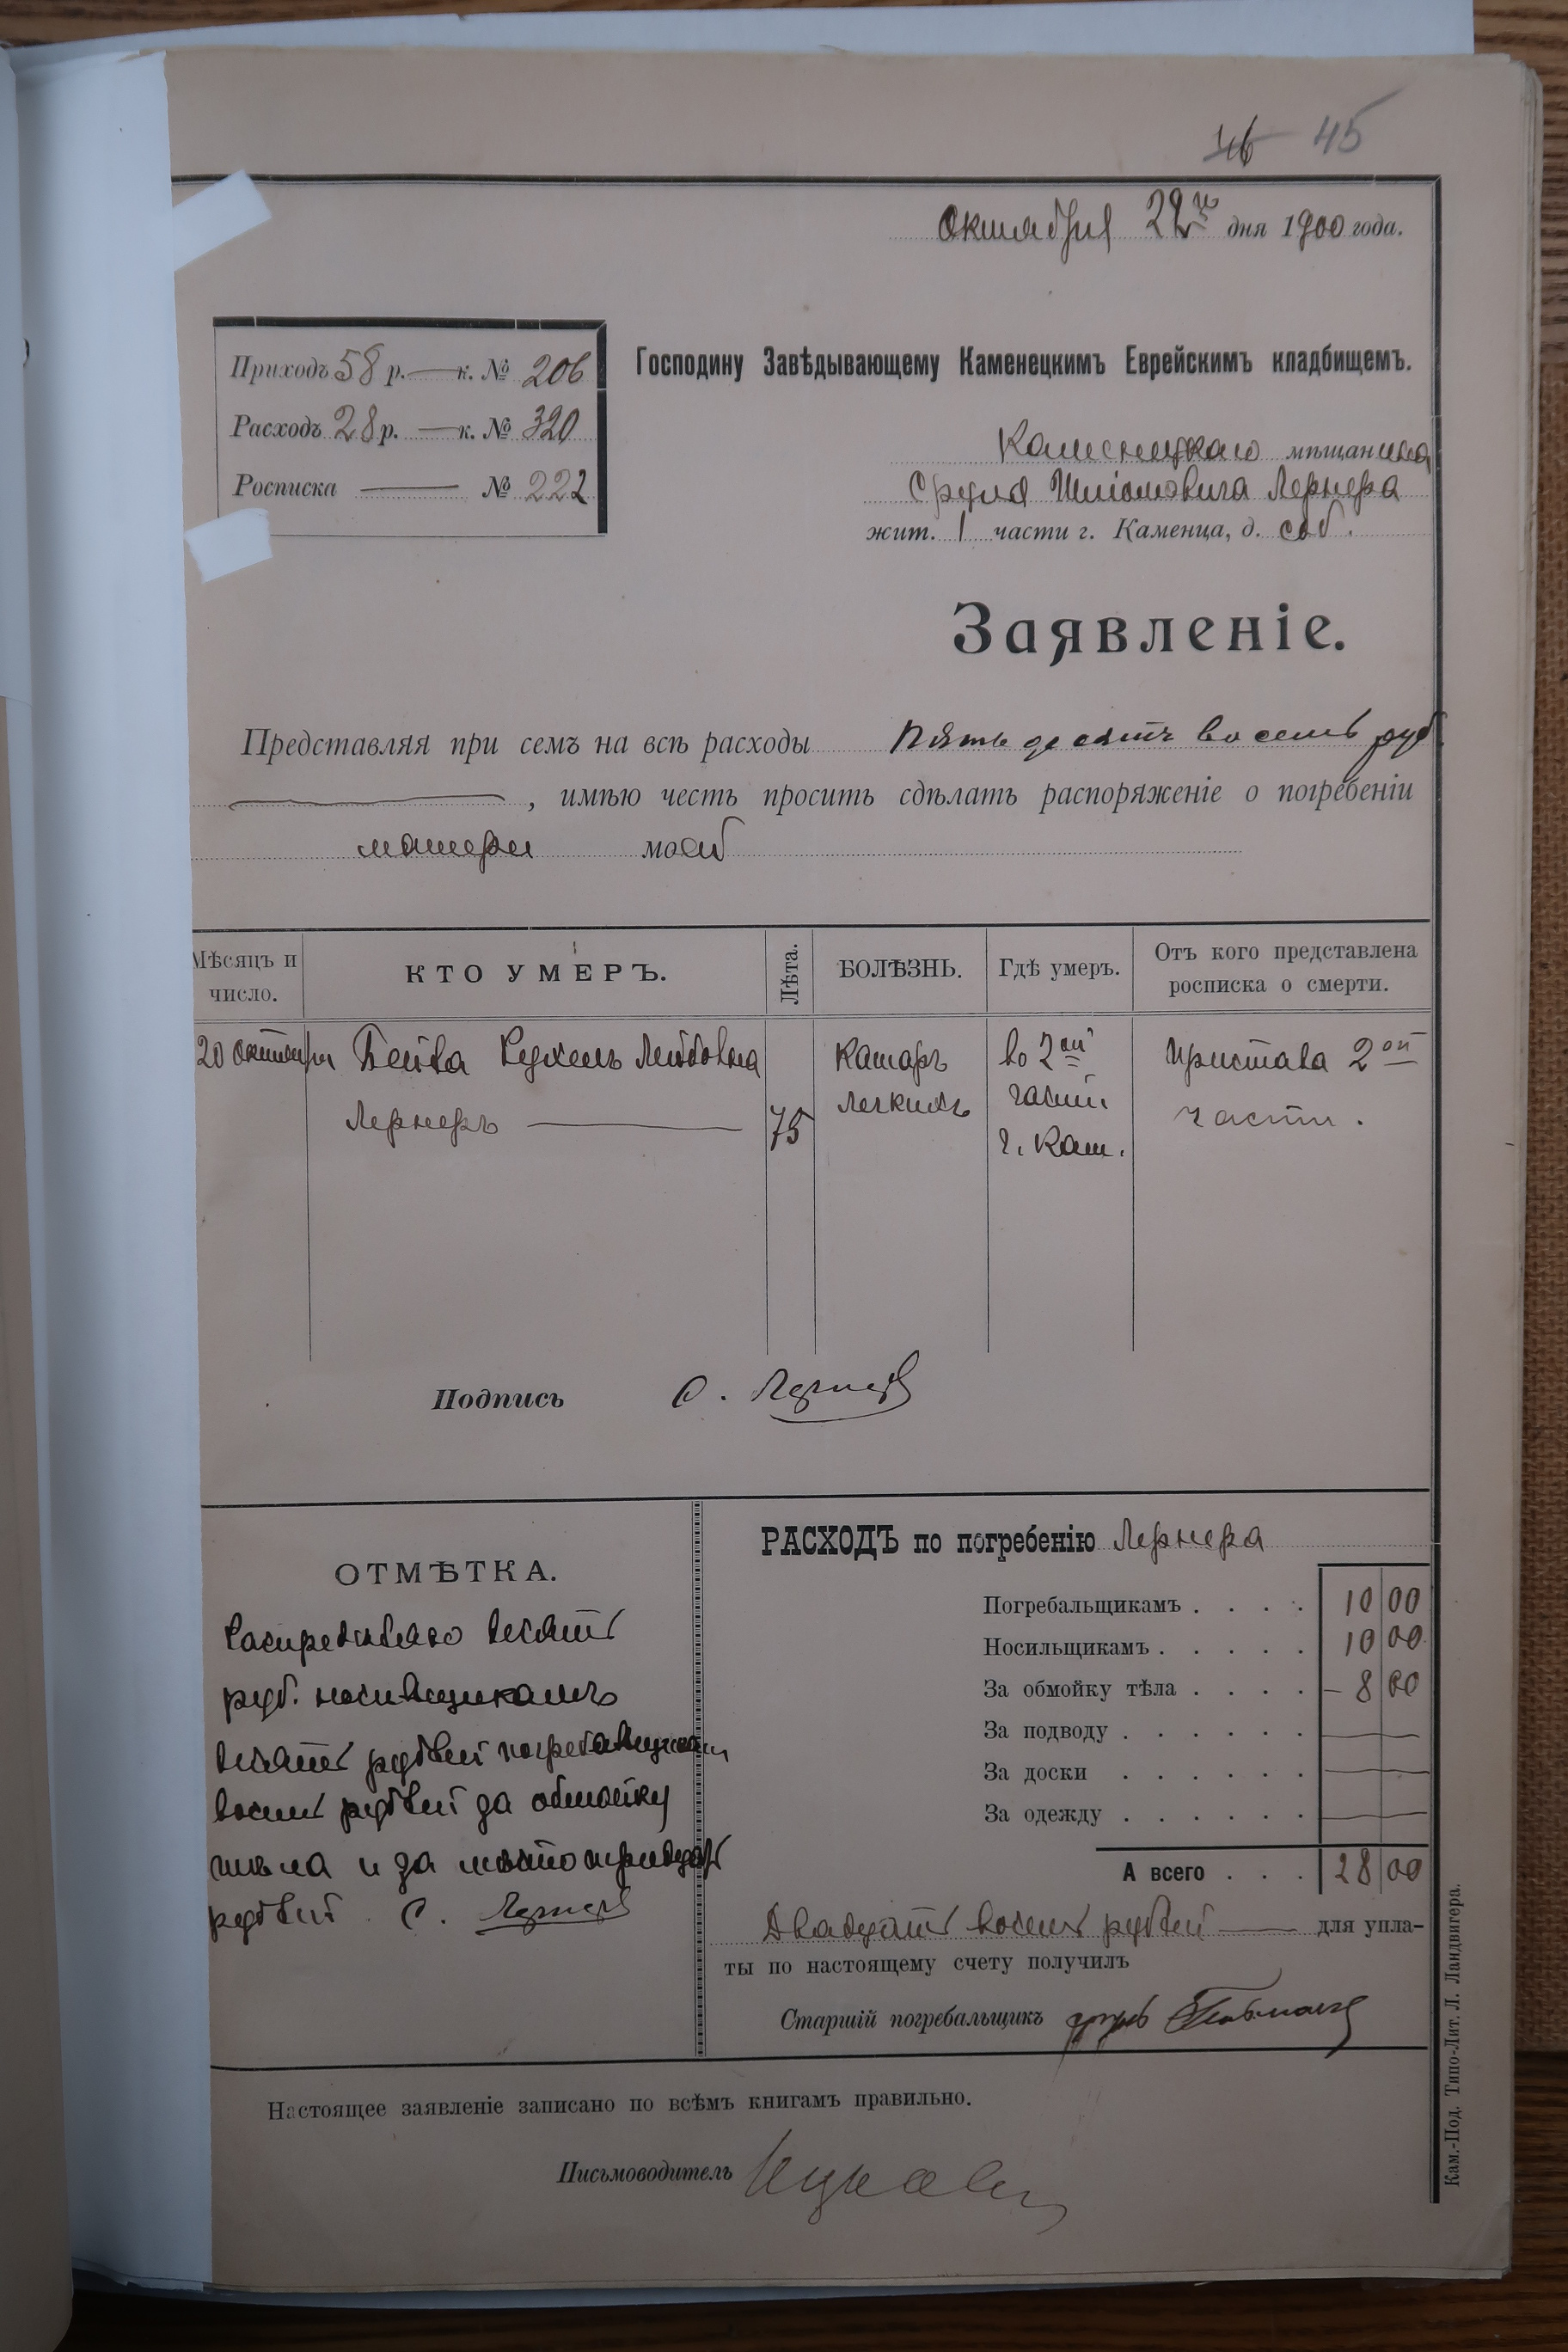 46 45
Октября 22го дня 1900 года.
Приходъ 58 р. — к. № 206
Расходъ 28 р. — к. № 320
Росписка — № 222
Господину Завѣдывающему Каменецкимъ Еврейскимъ кладбищемъ.
Каменецкаго мѣщанина
Сруля Лернера
жит. 1 части г. Каменца, д. соб.
Заявленіе.
Представляя при семъ на всѣ расходы пятьдесятъ восемь руб
, имѣю честь просить сдѣлать распоряженіе о погребеніи
матери моей
Мѣсяцъ и число.
КТО УМЕРЪ.
Лѣта.
БОЛѢЗНЬ.
Гдѣ умеръ.
Отъ кого представлена росписка о смерти.
20 октября Бейла Лейбовна во 2ой Пристава 2ой
Катаръ
легкихъ
Лернеръ — 75 части части.
г. Кам.
Подпись С. Лернеръ
ОТМѢТКА.
десять
руб. носильщикамъ
десять рублей погребальщикам
восемь рублей за обмойку
тѣла и за мѣсто тридцать
рублей. С. Лернеръ
РАСХОДЪ по погребенію Лернера
Погребальщикамъ . . . . 10 00
Носильщикамъ . . . . . 10 00
За обмойку тѣла . . . . — 8 00
За подводу . . . . . . —
За доски . . . . . . —
За одежду . . . . . . —
А всего . . . 28 00
Двадцать восемь рублей — для упла-
ты по настоящему счету получилъ
Старшій погребальщикъ
Настоящее заявленіе записано по всѣмъ книгамъ правильно.
Письмоводитель
Кам.-Под. Типо-Лит. Л. Ландвигера.